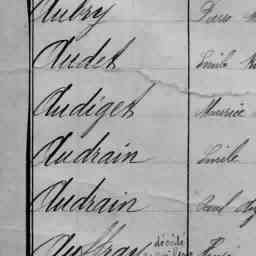 Aubry
Audet Emile
Audiget Maurice
Audrain Emile
Audrain Paul
Auffray décédé